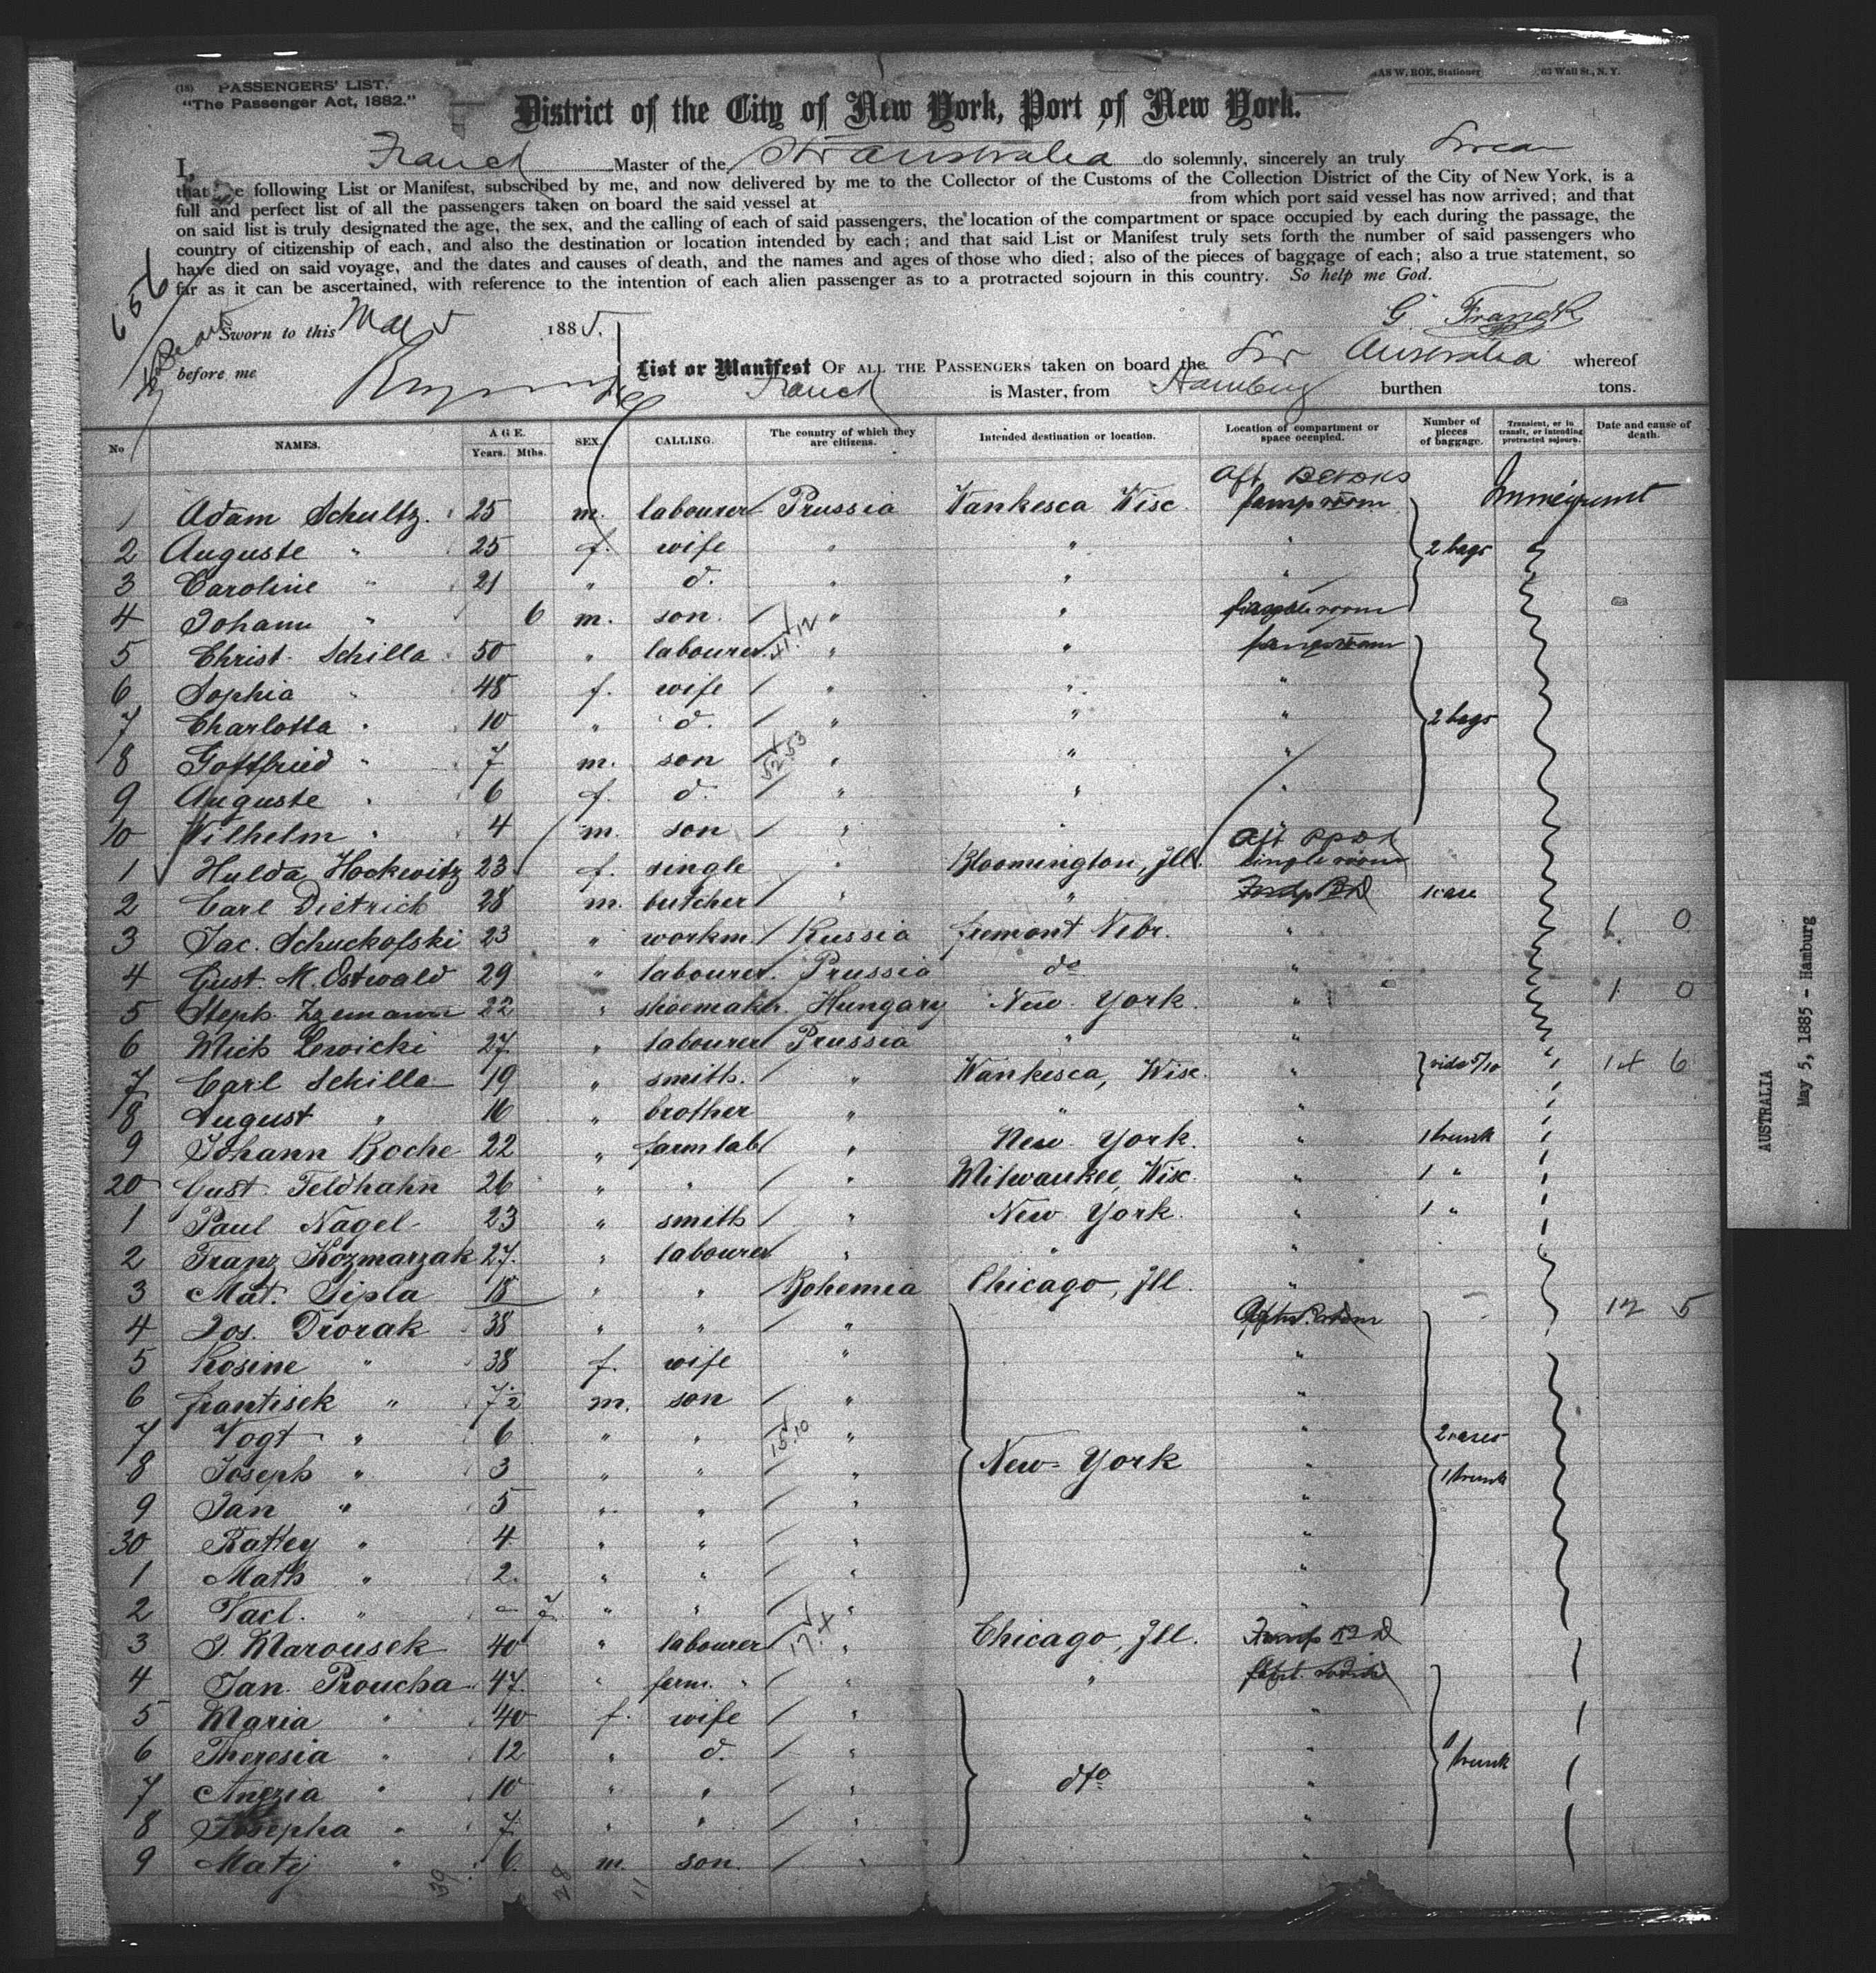 (18) PASSENGERS' LIST.
"The Passenger Act, 1882."
JAS W. ROE, Stationer 63 Wall St., N. Y.
District of the City of New York, Port of New York.
I, Franck Master of the Str Australia do solemnly, sincerely an truly Swear
that the following List or Manifest, subscribed by me, and now delivered by me to the Collector of the Customs of the Collection District of the City of New York, is a
full and perfect list of all the passengers taken on board the said vessel at from which port said vessel has now arrived; and that
on said list is truly designated the age, the sex, and the calling of each of said passengers, the location of the compartment or space occupied by each during the passage, the
country of citizenship of each, and also the destination or location intended by each; and that said List or Manifest truly sets forth the number of said passengers who
have died on said voyage, and the dates and causes of death, and the names and ages of those who died; also of the pieces of baggage of each; also a true statement, so
far as it can be ascertained, with reference to the intention of each alien passenger as to a protracted sojourn in this country. So help me God.
656
Sworn to this May 5 1885. G. Franck
before me
List or Manifest OF ALL THE PASSENGERS taken on board the Str Australia whereof
Franck is Master, from Hamburg burthen tons.
No NAMES. AGE. Years. Mths. SEX. CALLING. The country of which they are citizens. Intended destination or location. Location of compartment or space occupied. Number of pieces of baggage. Transient, or in transit, or intending protracted sojourn. Date and cause of death.
1 Adam Schultz. 25 m. labourer Prussia Wankesca Wisc. Aft Immigrant
2 Auguste " 25 f. wife " " " 2 bags
3 Caroline " 21 " d. " " "
4 Johann " 6 m. son. " "
5 Christ. Schilla 50 " labourer. 41.12 " "
6 Sophia " 48 f. wife " " "
7 Charlotta " 10 " d. " " " 2 bags
8 Gottfried " 7 m. son 52.53 " " "
9 Auguste " 6 f. d. " " "
10 Wilhelm " 4 m. son " "
1 Hulda Hockewitz 23 f. single " Bloomington, Ill. Aft single room
2 Carl Dietrich 28 m. butcher " " 1 case
3 Jac. Schuckofski 23 " workm. Russia fremont Nebr. "
4 Gust. M. Ostwald 29 " labourer. Prussia do "
5 Steph. 22 " shoemakr. Hungary New York. " 1 0
6 Mich Lewicki 27 " labourer Prussia " "
7 Carl Schilla 19 " smith. " Wankesca, Wisc. " vide 5/10 14 6
8 August " 16 " brother " " "
9 Johann Roche 22 " farm lab " New York. " 1 trunk
20 Gust. Feldhahn 26 " " " Milwaukee, Wisc. " 1 "
1 Paul Nagel 23 " smith " New York. " 1 "
2 Franz Kozmarzak 27. " labourer " " "
3 Mat. Sipla 18 " " Bohemia Chicago, Ill. "
4 Jos. Drorak 38 " " " 17 5
5 Rosine " 38 f. wife " "
6 frantisek " 7½ m. son " "
7 Vogt " 6 " " 15.10 " " 2 cases
8 Joseph " 3 " " " New York " 1 trunk
9 Jan " 5 " " " "
30 Rattey " 4 " " " "
1 Math " 2. " " " "
2 Vacl. " " " " "
3 J. Marousek 40 " labourer 17.4 " Chicago Ill.
4 Jan Proucha 47. " farm. " " "
5 Maria " 40 f. wife " "
6 Theresia " 12 " d. " "
7 Anezia " 10 " " " dto " 1 trunk
8 Josepha " 7 " " " "
9 Matij " 6 m. son. " "
39 28 11
AUSTRALIA
May 5, 1885 - Hamburg